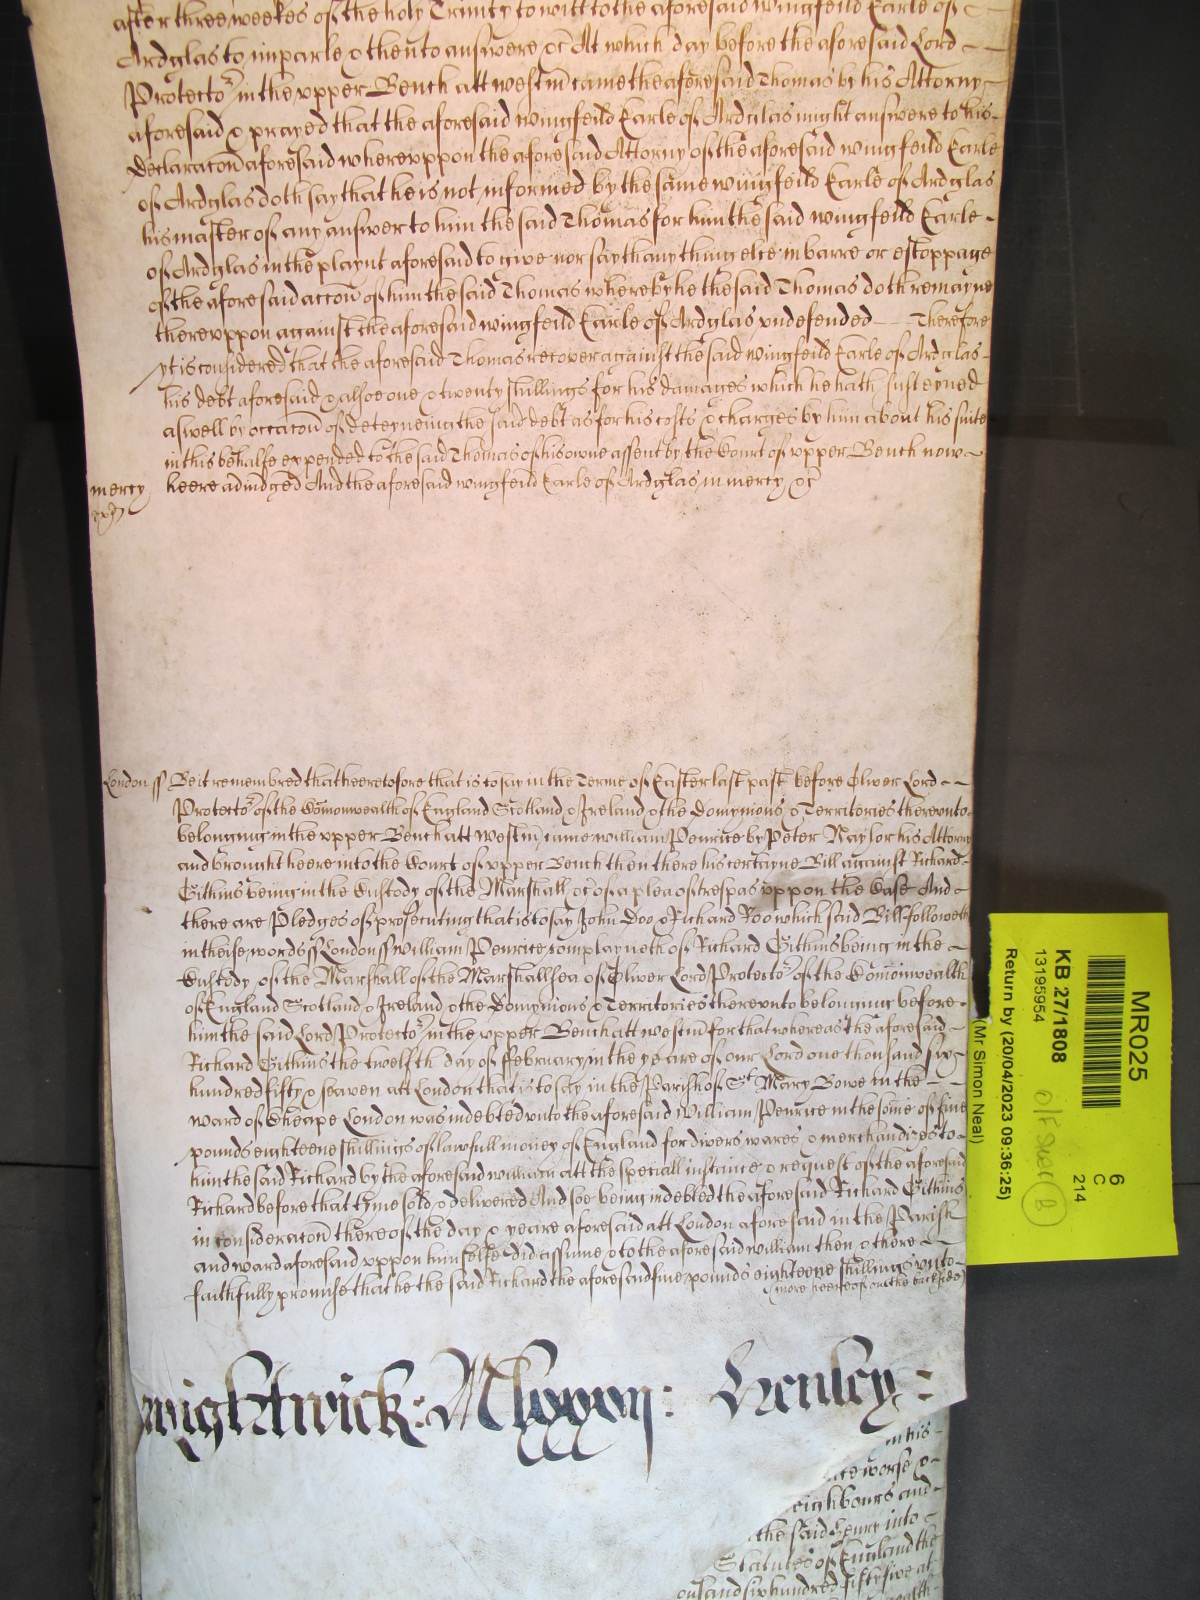 after three weekes of the holy Trinity to witt to the aforesaid Wingfeild Earle of
Ardglas to imparle & then to answere &c At which day before the aforesaid Lord
Protector in the upper Bench att Westm came the aforesaid Thomas by his Attorny
aforesaid & prayed that the aforesaid Wingfeild Earle of Ardglas might answere to his
declaracon aforesaid whereuppon the aforesaid Attorny of the aforesaid Wingfeild Earle
of Ardglas doth say that he is not informed by the same Wingfeild Earle of Ardglas
his master of any answer to him the said Thomas for him the said Wingfeild Earle
of Ardglas in the playnt aforesaid to give nor say th any thing else in barre or estoppage
of the aforesaid accon of him the said Thomas whereby he the said Thomas doth remayne
thereuppon against the aforesaid Wingfeild Earle of Ardglas undefended Therefore
yt is considered that the aforesaid Thomas recover against the said Wingfeild Earle of Ardglas
his debt aforesaid & alsoe one & twenty shillings for his damages which he hath susteyned
aswell by occacon of deteyneing the said debt as for his costs & charges by him about his suite
in this behalfe expended to the said Thomas of his owne assent by the Court of upper Bench now
mercy heere adiudged And the aforesaid Wingfeild Earle of Ardglas in mercy &c
London ss Be it remembred that heeretofore that is to say in the Terme of Easter last past before Oliver Lord
Protector of the Comonwealth of England Scotland & Ireland & the Dominions & Territories thereunto
belonging in the upper Bench att Westm came William Penrice by Peter Naylor his Attorny
and brought heere into the Court of upper Bench then there his certayne Bill against Richard
Gitkins being in the Custody of the Marshall &c of a plea of trespas uppon the Case And
there are Pledges of prosecuting that is to say John Doo & Richard Roo which said Bill followeth
in theise words ss London ss William Penrice complayneth of Richard Gitkins being in the
Custody of the Marshall of the Marshallsea of Oliver Lord Protector of the Comonwealth
of England Scotland & Ireland & the Dominions & Territories thereunto belonging before
him the said Lord Protector in the upper Bench att Westm for that whereas the aforesaid
Richard Gitkins the twelfth day of February in the yeare of our Lord one thousand six
hundred fifty & seaven att London that is to say in the Parish of St Mary Bowe in the
Ward of Cheape London was indebted unto the aforesaid William Penrice in the some of five
pounds eighteene shillings of lawfull money of England for divers wares & merchandizes to
him the said Richard by the aforesaid William att the speciall instance & request of the aforesaid
Richard before that tyme sold & delivered And soe being indebted the aforesaid Richard Gitkins
in consideracon thereof the day & yeare aforesaid att London aforesaid in the Parish
and ward aforesaid uppon himselfe did assume & to the aforesaid William then & there
faithfully promise that he the said Richard the aforesaid five pounds eighteene shillings unto
(more heereof on the backside)
Wightwick: Mloxon: Henley:
in his
worse &
eighbours and
the said Henry into
Statutes of England the
ousand six hundred fifty five at
MR025
6
C
214
KB 27/1808
13195954
Return by (20/04/2023 09:36:25)
(Mr Simon Neal)